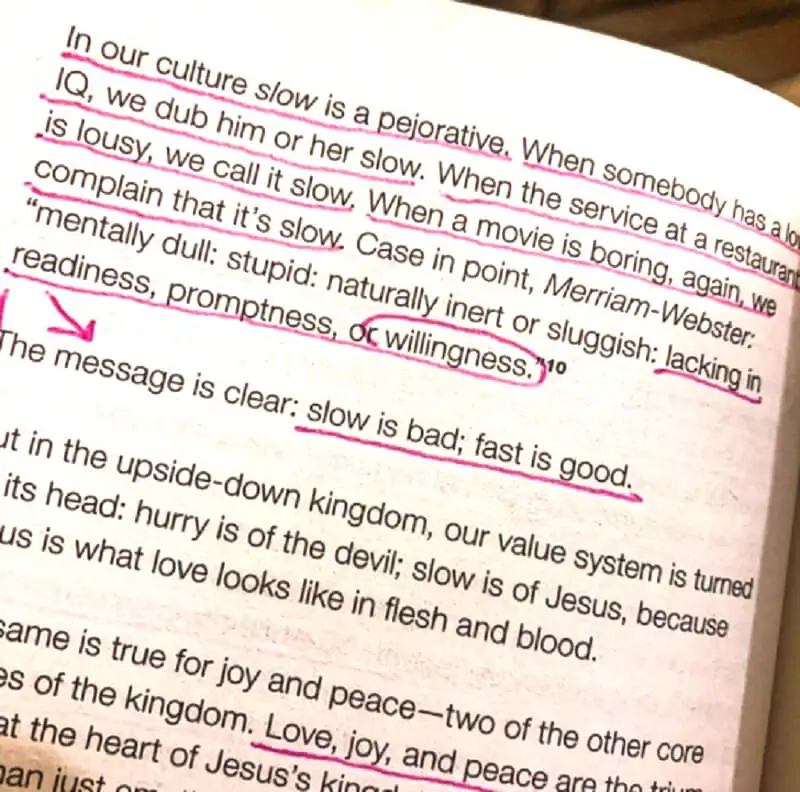 In our culture slow is a pejorative. When somebody has a
IQ, we dub him or her slow. When the service at a restaurant
is lousy, we call it slow. When a movie is boring, again, we
complain that it's slow. Case in point, Merriam-Webster:
“mentally dull: stupid: naturally inert or sluggish: lacking in
readiness, promptness, or willingness.”10
The message is clear: slow is bad; fast is good.
in the upside-down kingdom, our value system is turned
its head: hurry is of the devil; slow is of Jesus, because
is what love looks like in flesh and blood.
same is true for joy and peace—two of the other core
of the kingdom. Love, joy, and peace are the
at the heart of Jesus's
just